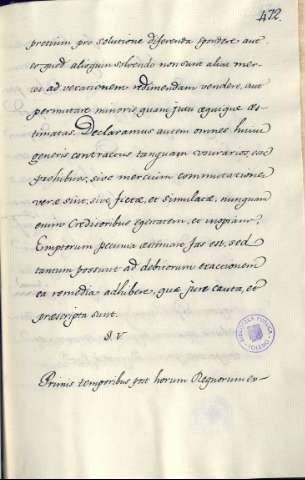 472.
pretium pro solutione diferenda spondere aut
eo quod alioquin solvendo non sint alias mer-
ces ad vexationem redimendam vendere, aut
permutare minoris quam justi æquique æs-
timatas. Declaramus autem omnes hujus
generis contractus tanquam usurarios, esse
prohibitos, sive mercium commutationes
veræ sint, sive fictæ, et simulatæ, nunquam
enim Creditoribus egestatem, et inopiam
Emptorum pecunia estimare fas est, sed
tantum possunt ad debitorum exactionem
ea remedia adhibere, quæ jure cauta, et
præscripta sunt.
§. V
Primis temporibus post horum Regnorum ex-
BIBLIOTECA PUBLICA
TOLEDO